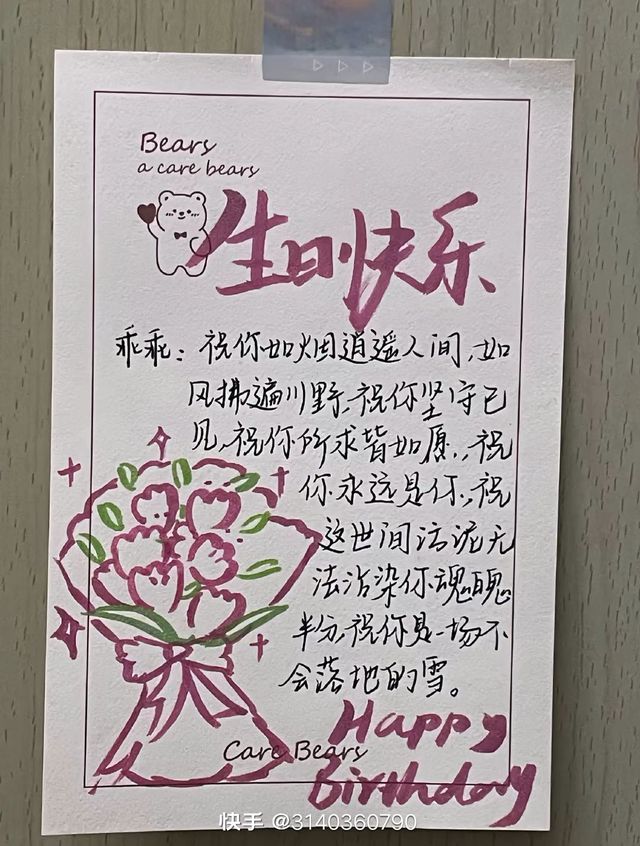 Bears
a care bears
生日快乐
乖乖：祝你如烟逍遥人间，如
风拂遍川野，祝你坚守己
见，祝你所求皆如愿，祝
你永远是你，祝
这世间污泥无
法沾染你魂魄
半分，祝你是一场不
会落地的雪。
Happy
Care Bears
Birthday
快手 @3140360790